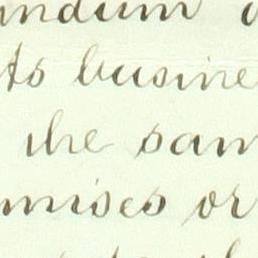 andum
its busine
the sam
mises or